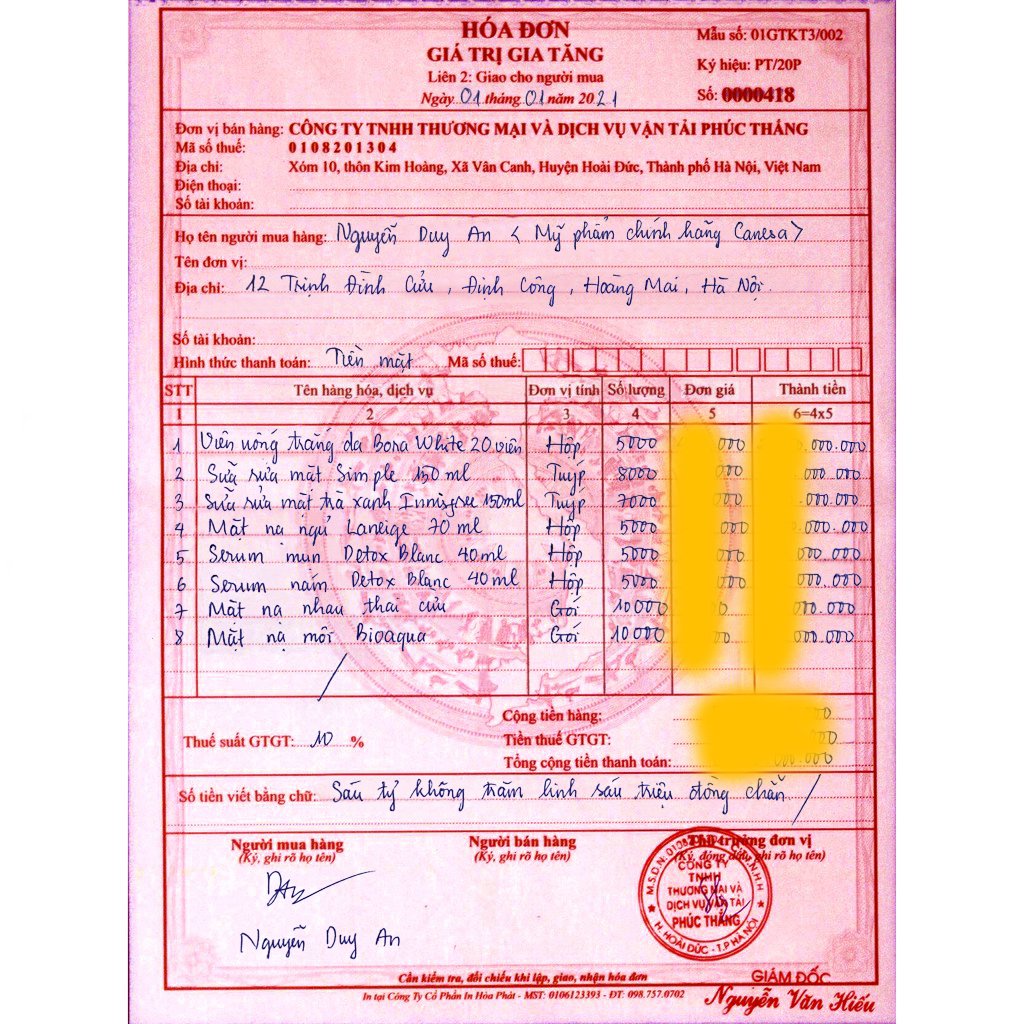 HÓA ĐƠN
GIÁ TRỊ GIA TĂNG
Liên 2: Giao cho người mua
Ngày 01 tháng 01 năm 2021
Mẫu số: 01GTKT3/002
Ký hiệu: PT/20P
Số: 0000418
Đơn vị bán hàng: CÔNG TY TNHH THƯƠNG MẠI VÀ DỊCH VỤ VẬN TẢI PHÚC THẮNG
Mã số thuế: 0108201304
Địa chỉ: Xóm 10, thôn Kim Hoàng, Xã Vân Canh, Huyện Hoài Đức, Thành phố Hà Nội, Việt Nam
Điện thoại:
Số tài khoản:
Họ tên người mua hàng: Nguyễn Duy An < Mỹ phẩm chính hãng Canesa >
Tên đơn vị:
Địa chỉ: 12 Trịnh Đình Cửu, Định Công, Hoàng Mai, Hà Nội.
Số tài khoản:
Hình thức thanh toán: Tiền mặt Mã số thuế:
STT Tên hàng hóa, dịch vụ Đơn vị tính Số lượng Đơn giá Thành tiền
1 2 3 4 5 6=4x5
1 Viên uống trắng da Bora White 20 viên Hộp 5000 000 000.000
2 Sữa rửa mặt Simple 150 ml Tuýp 8000 000 000.000
3 Sữa rửa mặt trà xanh Innisfree 150ml Tuýp 7000 000 000.000
4 Mặt nạ ngủ Laneige 70 ml Hộp 5000 000 000.000
5 Serum mụn Detox Blanc 40 ml Hộp 5000 000 000.000
6 Serum nám Detox Blanc 40 ml Hộp 5000 000 000.000
7 Mặt nạ nhau thai cừu Gói 10000 00 000.000
8 Mặt nạ môi Bioaqua Gói 10000 00 000.000
Cộng tiền hàng: 00
Thuế suất GTGT: 10 % Tiền thuế GTGT: 000
Tổng cộng tiền thanh toán: 000.000
Số tiền viết bằng chữ: Sáu tỷ không trăm linh sáu triệu đồng chẵn
Người mua hàng Người bán hàng Thủ trưởng đơn vị
(Ký, ghi rõ họ tên) (Ký, ghi rõ họ tên) (Ký, đóng dấu, ghi rõ họ tên)
CÔNG TY
TNHH
THƯƠNG MẠI VÀ
DỊCH VỤ VẬN TẢI
PHÚC THẮNG
H. HOÀI ĐỨC - T.P HÀ NỘI
Nguyễn Duy An
GIÁM ĐỐC
Nguyễn Văn Hiếu
Cần kiểm tra, đối chiếu khi lập, giao, nhận hóa đơn
In tại Công Ty Cổ Phần In Hòa Phát - MST: 0106123393 - ĐT: 098.757.0702